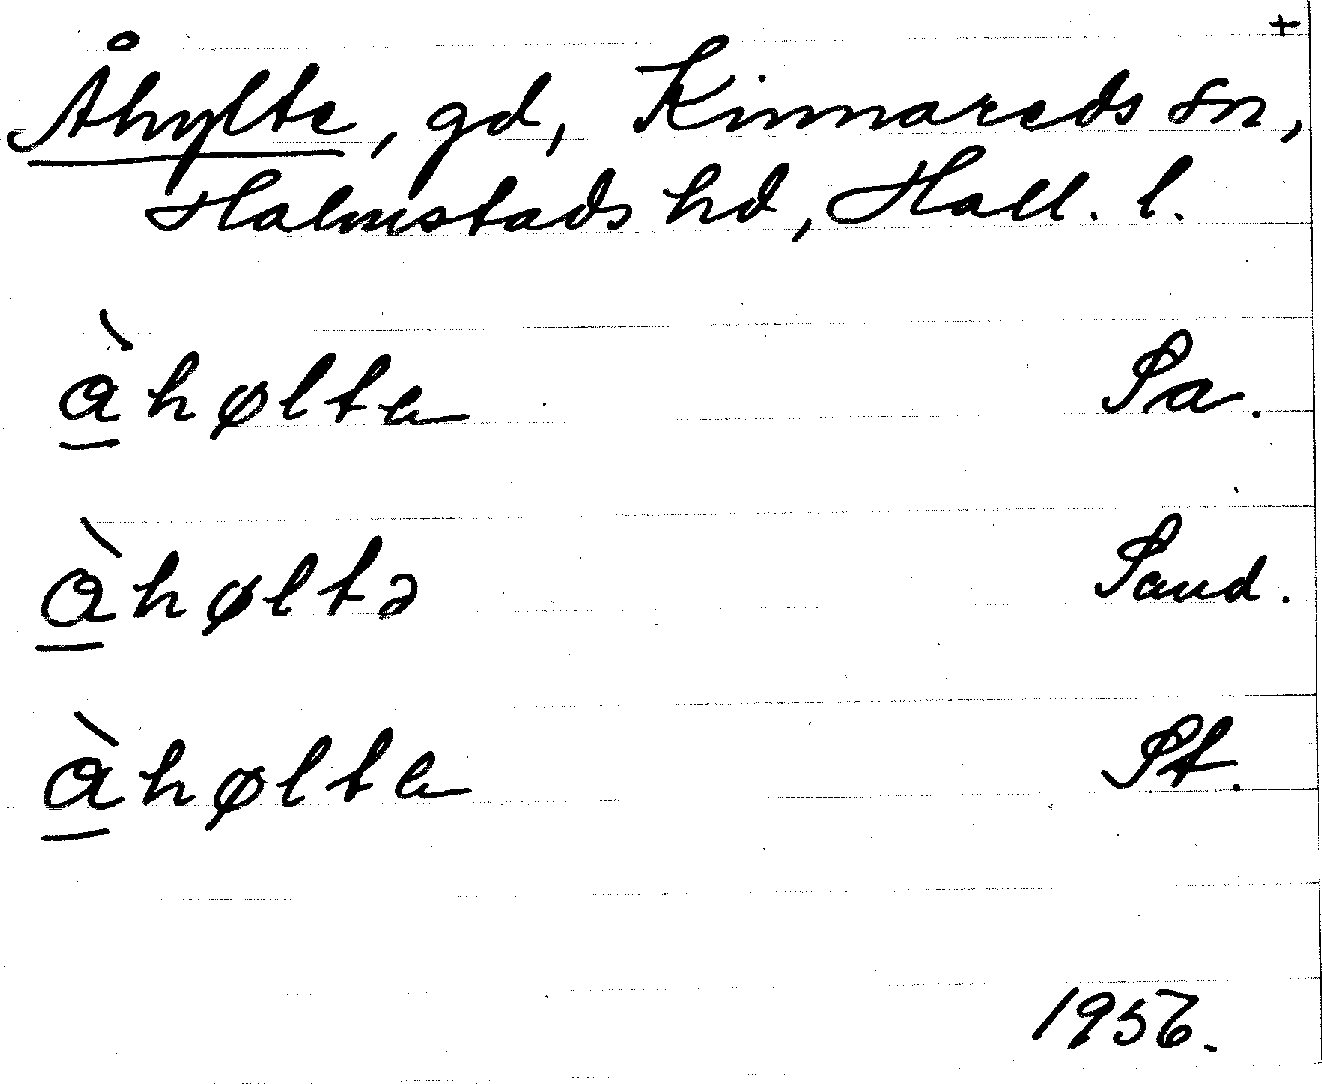 +
Åhylte, gd, Kinnareds sn,
Halmstads hd, Hall. l.
à̱hølta Sa.
à̱høltə Sand.
à̱hølta St.
1956.